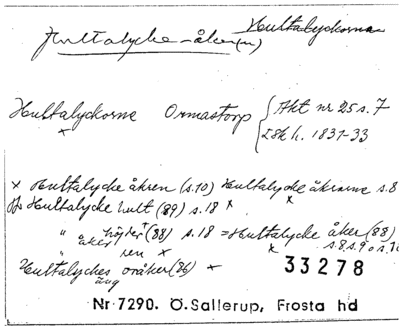 Hultalycke-åker(n) Hultalyckorna
Hultalyckorne Ormastorp Akt nr 25 s. 7
x LSk h. 1831-33
x Hultalycke åkren (s.10) Hultalycke åkrarne s.8
Hultalycke hult (89) s.18 x
" höjder (88) s.18 = Hultalycke åker (88)
" åker ren x x s.8 s.9 o s.10
Hultalyckes oråker (86) x
äng
33278
Nr 7290. Ö. Sallerup, Frosta hd